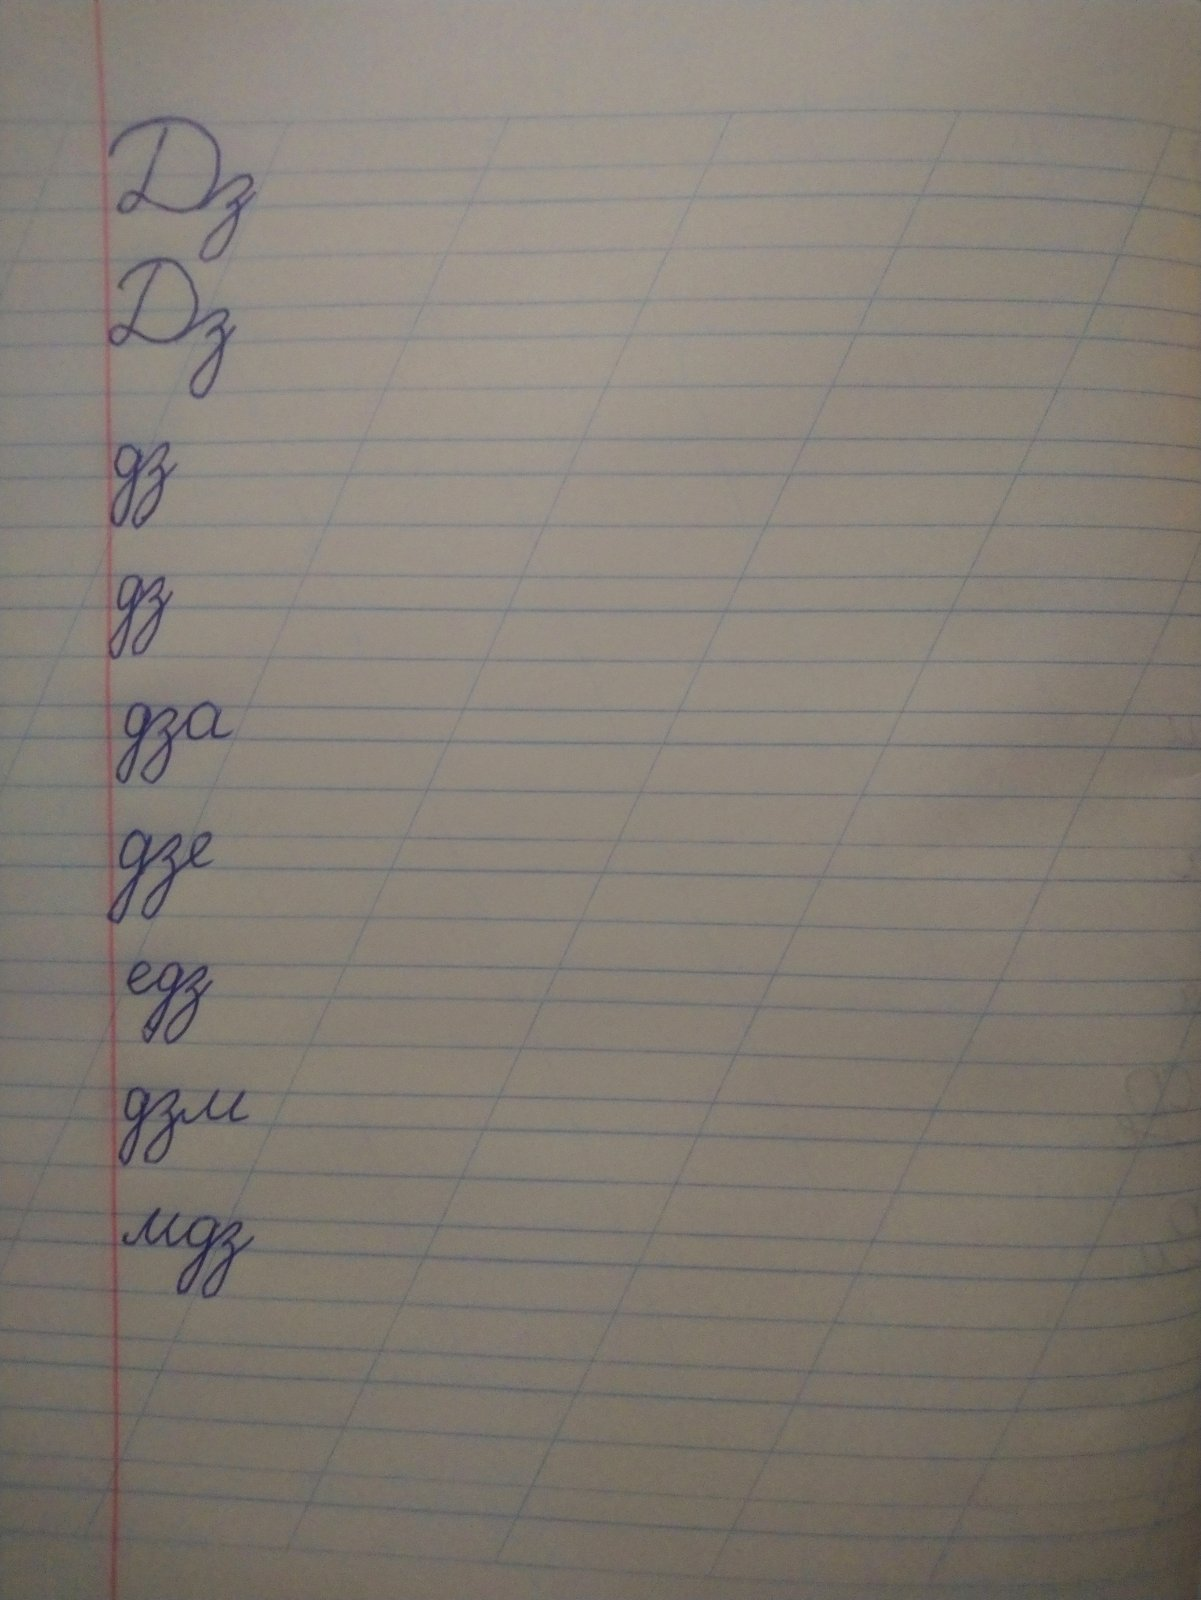 Дз
Дз
дз
дз
дза
дзе
едз
дзм
мдз